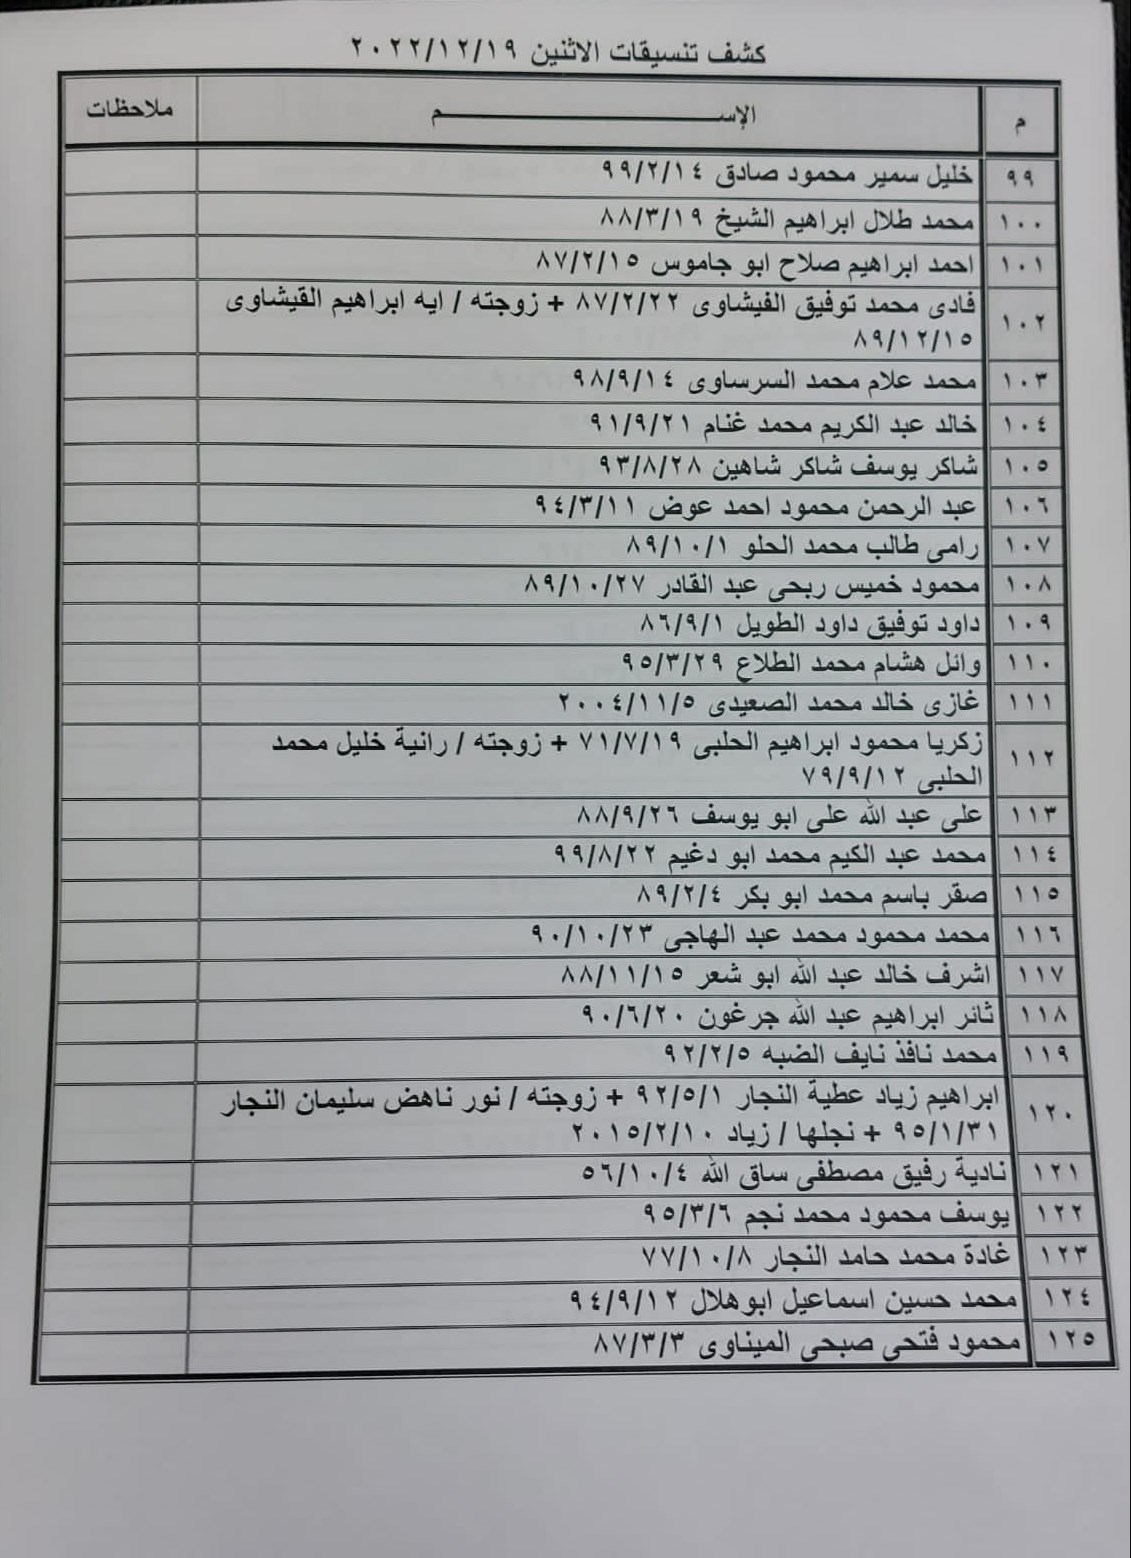 كشف تنسيقات الاثنين ٢٠٢٢/١٢/١٩
م الإســـــــم ملاحظات
٩٩ خليل سمير محمود صادق ٩٩/٢/١٤
١٠٠ محمد طلال ابراهيم الشيخ ٨٨/٣/١٩
١٠١ احمد ابراهيم صلاح ابو جاموس ٨٧/٢/١٥
١٠٢ فادى محمد توفيق الفيشاوى ٨٧/٢/٢٢ + زوجته / ايه ابراهيم القيشاوى
٨٩/١٢/١٥
١٠٣ محمد علام محمد السرساوى ٩٨/٩/١٤
١٠٤ خالد عبد الكريم محمد غنام ٩١/٩/٢١
١٠٥ شاكر يوسف شاكر شاهين ٩٣/٨/٢٨
١٠٦ عبد الرحمن محمود احمد عوض ٩٤/٣/١١
١٠٧ رامى طالب محمد الحلو ٨٩/١٠/١
١٠٨ محمود خميس ربحى عبد القادر ٨٩/١٠/٢٧
١٠٩ داود توفيق داود الطويل ٨٦/٩/١
١١٠ وائل هشام محمد الطلاع ٩٥/٣/٢٩
١١١ غازى خالد محمد الصعيدى ٢٠٠٤/١١/٥
١١٢ زكريا محمود ابراهيم الحلبى ٧١/٧/١٩ + زوجته / رانية خليل محمد
الحلبى ٧٩/٩/١٢
١١٣ على عبد الله على ابو يوسف ٨٨/٩/٢٦
١١٤ محمد عبد الكيم محمد ابو دغيم ٩٩/٨/٢٢
١١٥ صقر باسم محمد ابو بكر ٨٩/٢/٤
١١٦ محمد محمود محمد عبد الهاجى ٩٠/١٠/٢٣
١١٧ اشرف خالد عبد الله ابو شعر ٨٨/١١/١٥
١١٨ ثائر ابراهيم عبد الله جرغون ٩٠/٦/٢٠
١١٩ محمد نافذ نايف الضبه ٩٢/٢/٥
١٢٠ ابراهيم زياد عطية النجار ٩٢/٥/١ + زوجته / نور ناهض سليمان النجار
٩٥/١/٣١ + نجلها / زياد ٢٠١٥/٢/١٠
١٢١ نادية رفيق مصطفى ساق الله ٥٦/١٠/٤
١٢٢ يوسف محمود محمد نجم ٩٥/٣/٦
١٢٣ غادة محمد حامد النجار ٧٧/١٠/٨
١٢٤ محمد حسين اسماعيل ابوهلال ٩٤/٩/١٢
١٢٥ محمود فتحى صبحى الميناوى ٨٧/٣/٣